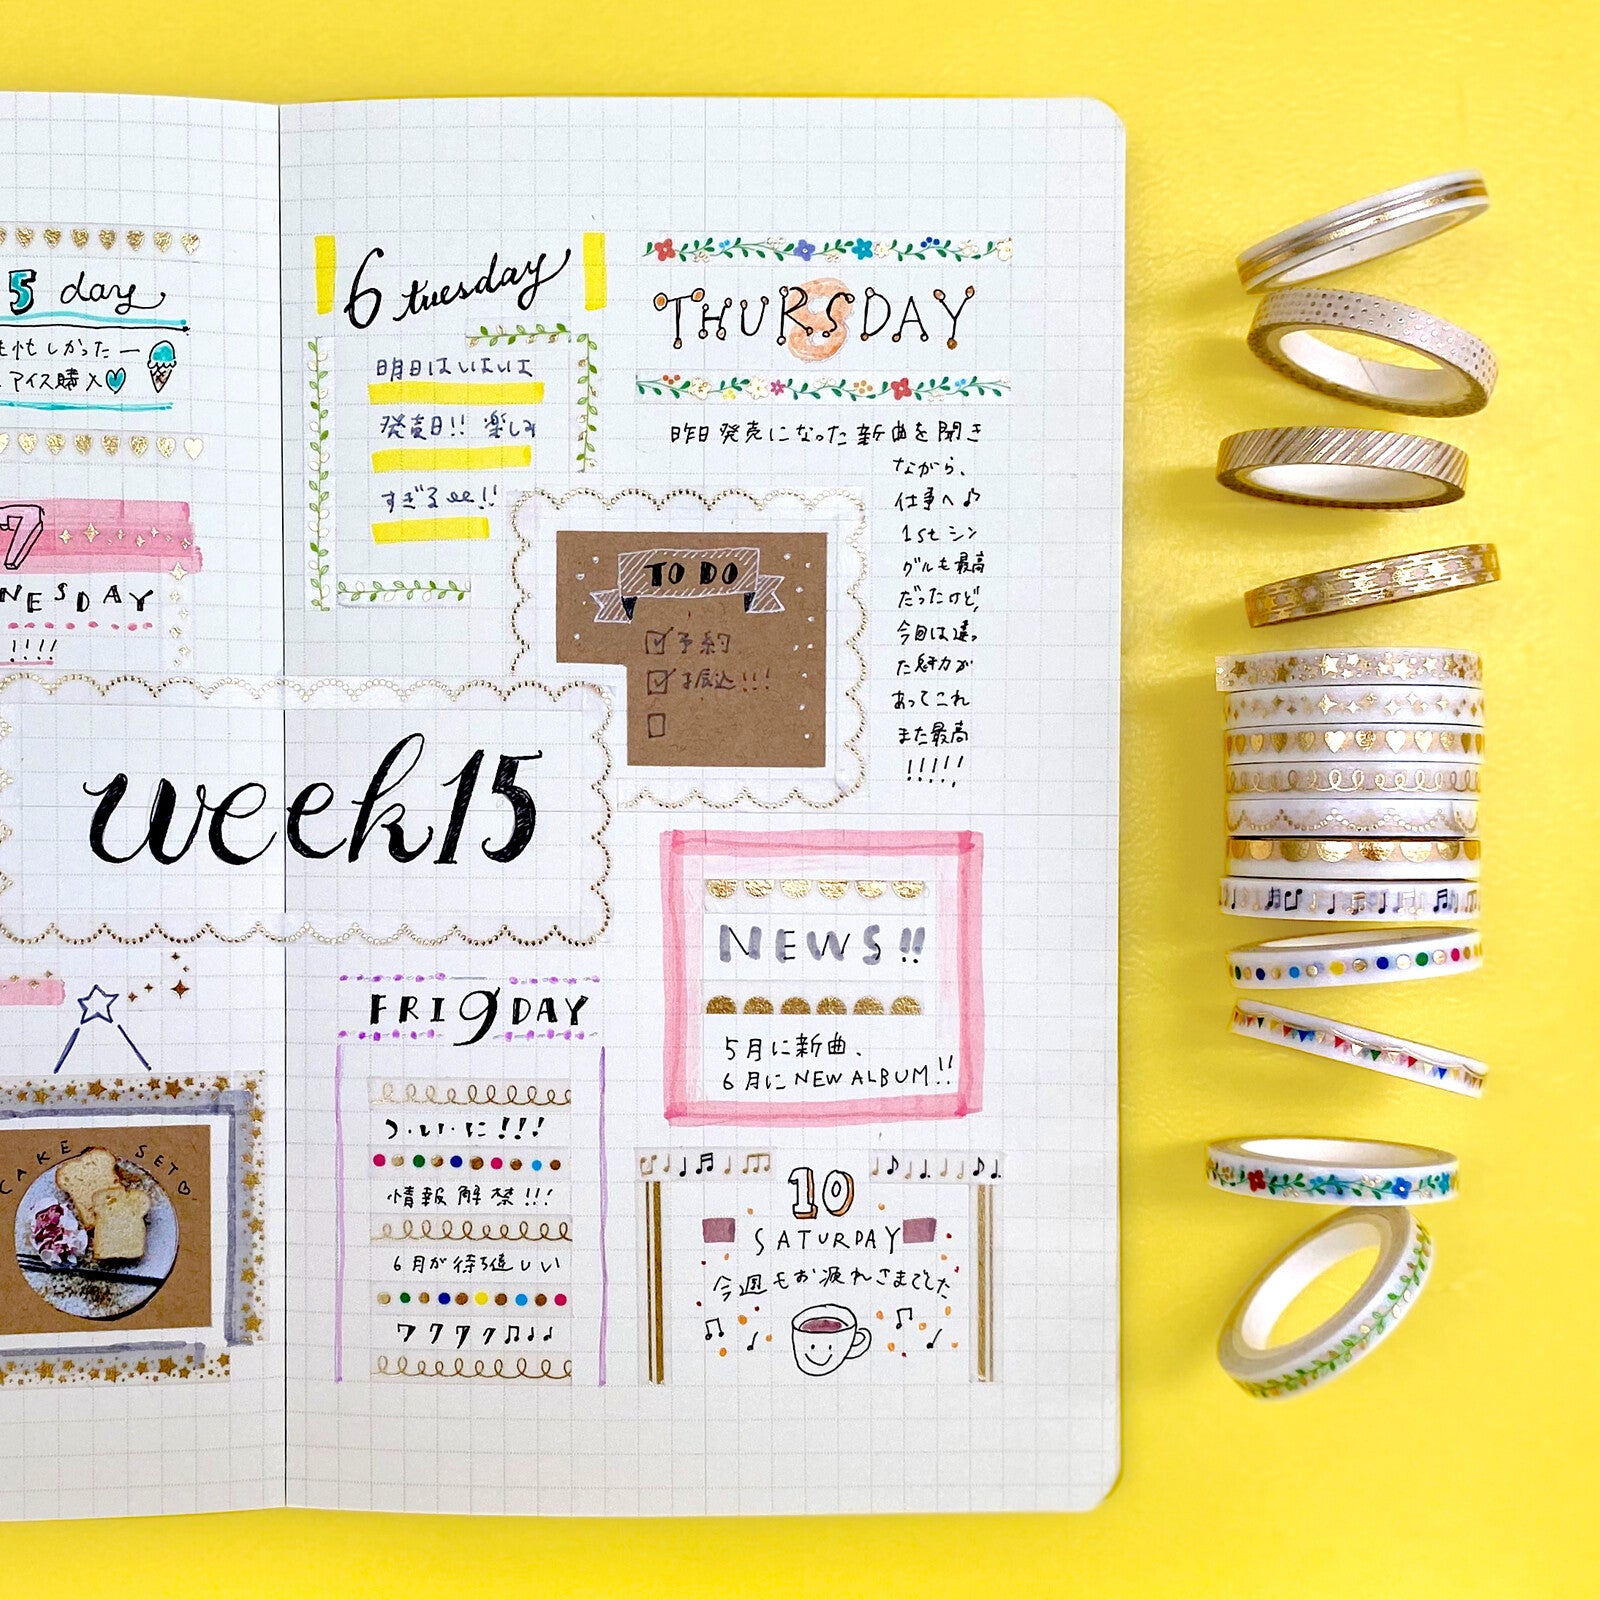 5 day
忙しかったー
アイス購入
7
NESDAY
!!!!
week15
CAKE SET
6 tuesday
明日はいよいよ
発売日!! 楽しみ
すぎる!!
THURSDAY
8
昨日発売になった新曲を聞き
ながら、
仕事へ♪
1stシン
グルも最高
だったけど、
今回は違っ
た魅力が
あってこれ
また最高
!!!!!
TO DO
予約
振込!!!
NEWS!!
5月に新曲、
6月にNEW ALBUM!!
FRI9DAY
つ・い・に!!!
情報解禁!!!
6月が待ち遠しい
ククククク♫♩♩
10
SATURDAY
今週もお疲れさまでした